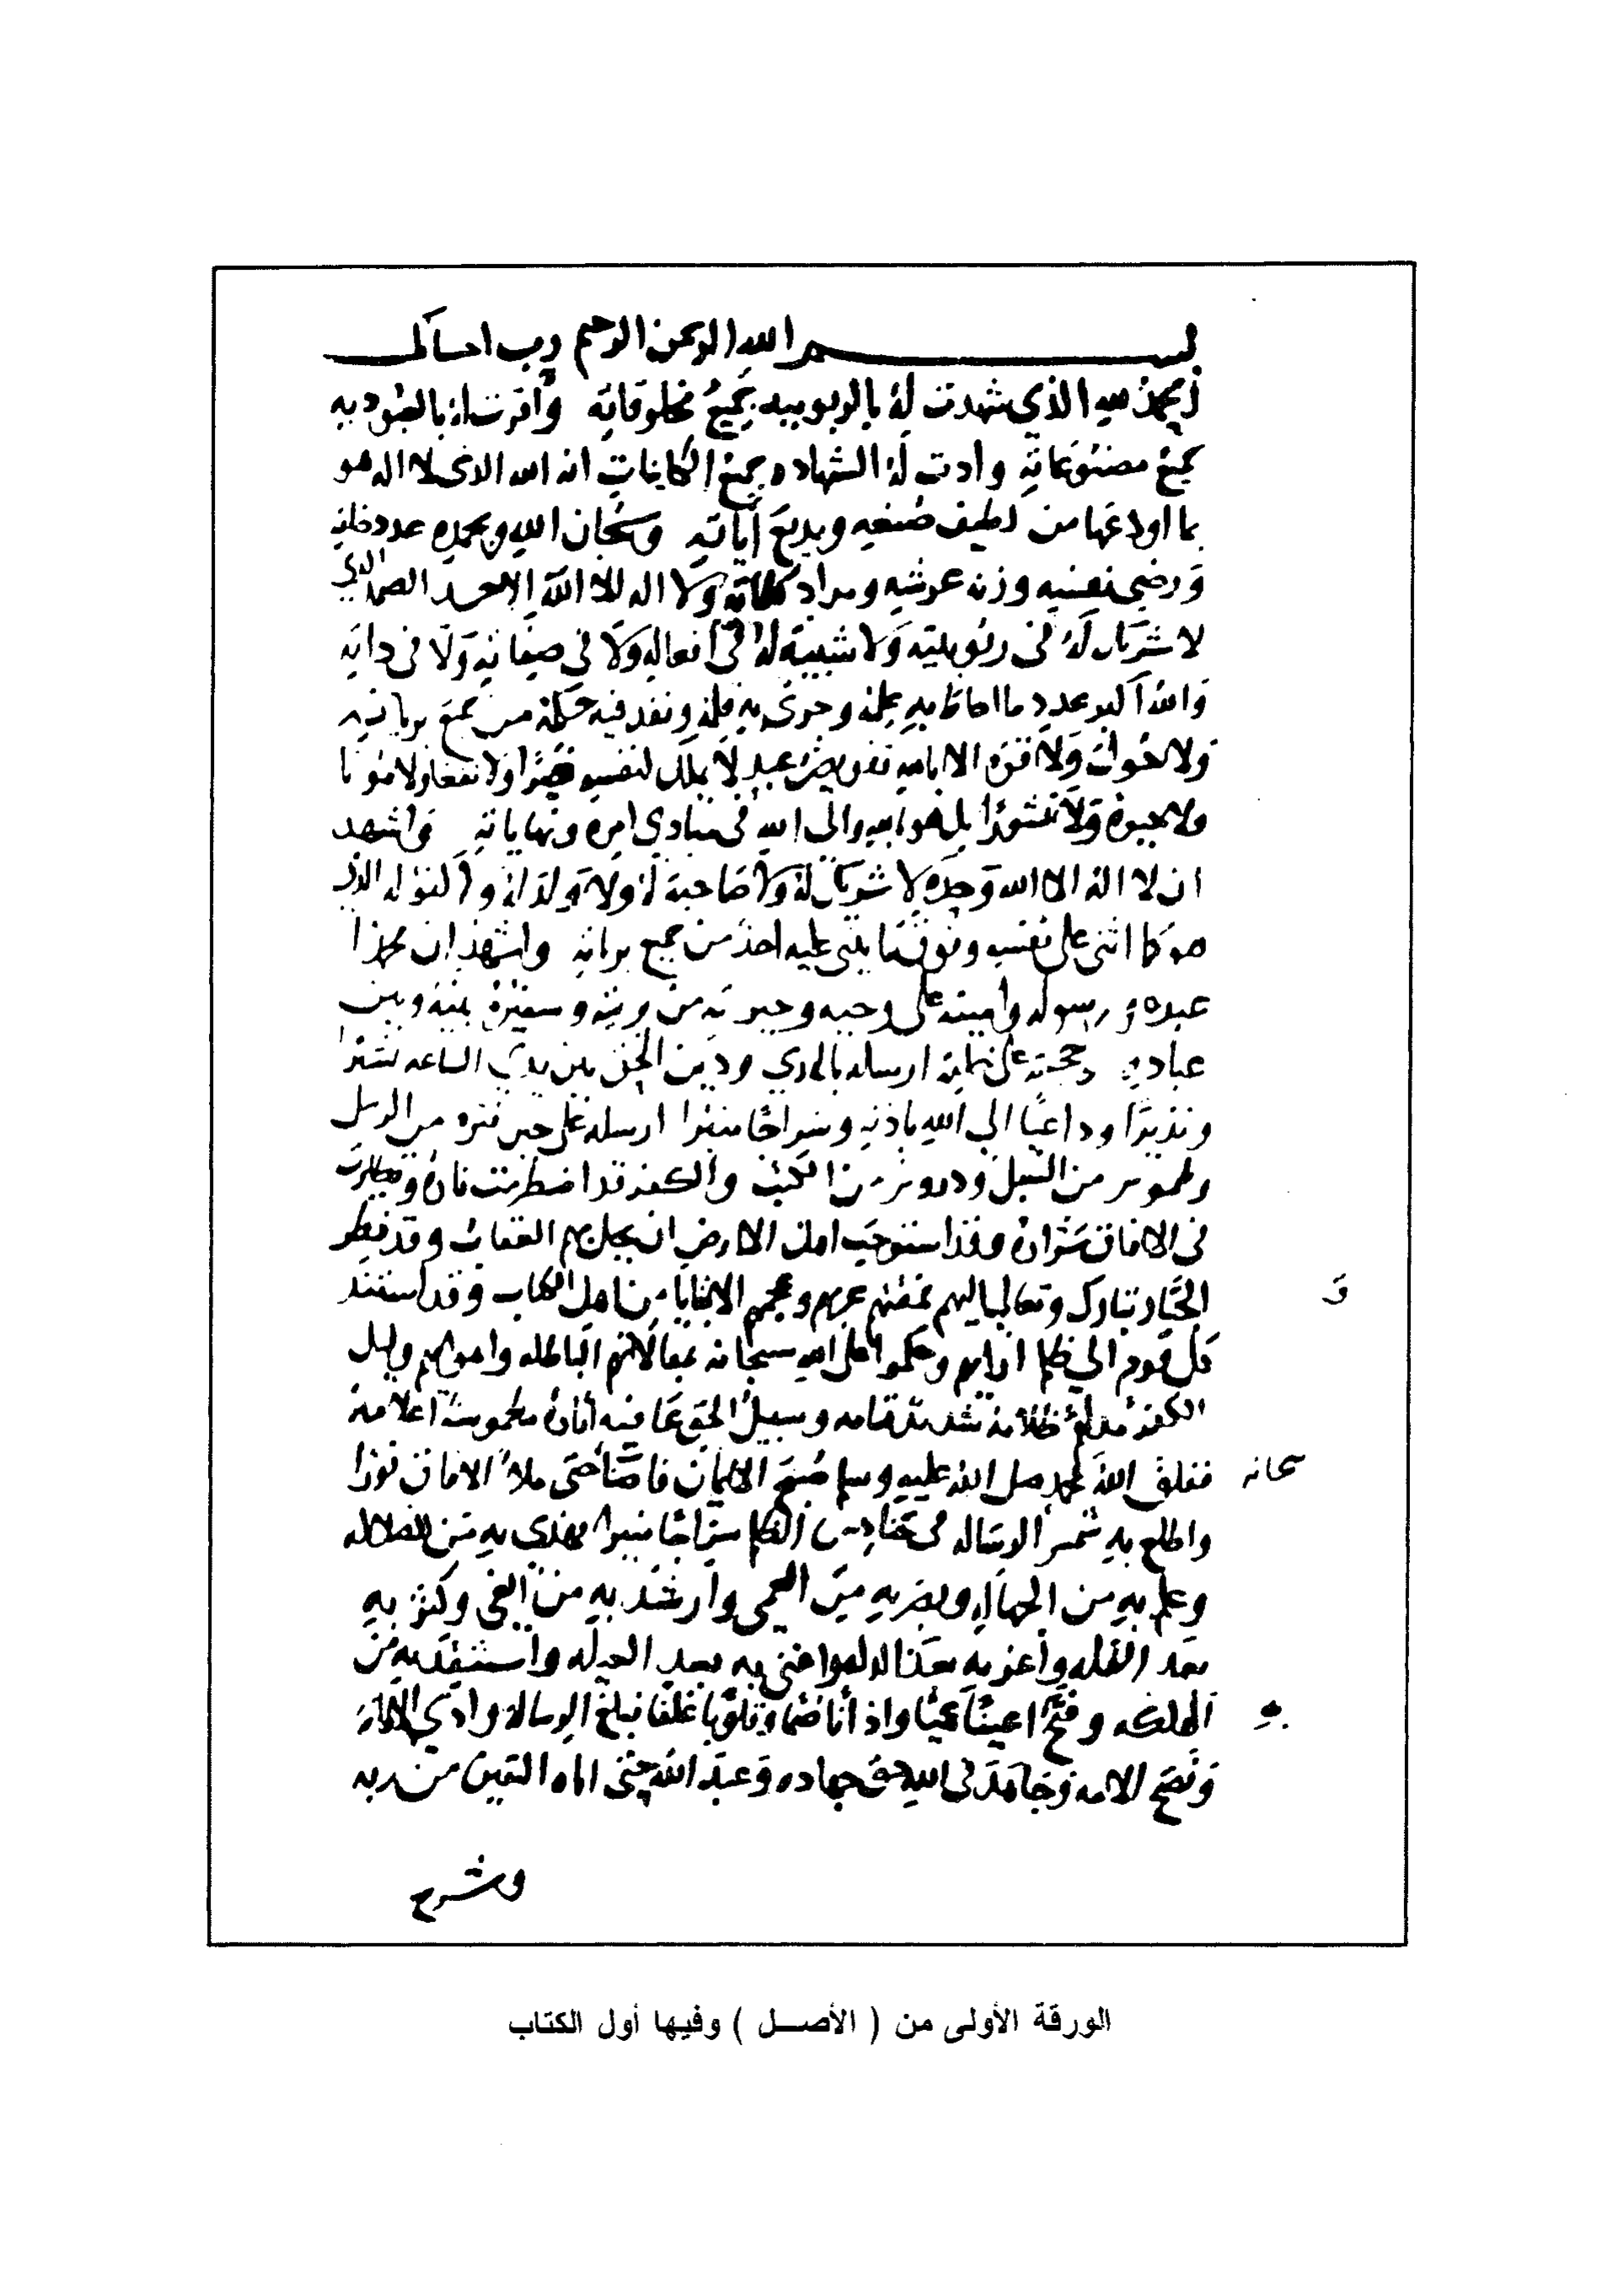 بسم الله الرحمن الرحيم رب
الحمد لله الذي شهدت له بالربوبيه جميع مخلوقاته واقرت له بالعبوديه
جميع مصنوعاته وادت له الشهاده جميع الكاينات انه الله الذي لا اله الا هو
بما اودعها من لطيف صنعه وبديع آياته وسبحان الله وبحمده عدد خلقه
ورضى نفسه وزنه عرشه ومداد كلماته ولا اله الا الله الاحد الصمد الذي
لا شريك له في ربوبيته ولا شبيه له في افعاله ولا في صفاته ولا في ذاته
والله اكبر عدد ما احاط به علمه وجرى به قلمه ونفذ فيه حكمه من جميع برياته
ولا حول ولا قوه الا بالله تفويض عبد لا يملك لنفسه ضرا ولا نفعا ولا موتا
ولا حيوة ولا نشورا بل هو بالله والى الله في مبادي امره ونهاياته واشهد
ان لا اله الا الله وحده لا شريك له ولا صاحبة له ولا ولد له ولا كفو له الذي
هو كما اثنى على نفسه وفوق ما يثني عليه احد من جميع برياته واشهد ان محمدا
عبده ورسوله وامينه على وحيه وخيرته من بريته وسفيره بينه وبين
عباده وحجته على خلقه ارسله بالهدى ودين الحق بين يدي الساعه بشيرا
ونذيرا وداعيا الي الله باذنه وسراجا منيرا ارسله على حين فتره من الرسل
وطموس من السبل ودروس من الكتب والكفر قد اضطرمت ناره وتطايرت
في الافاق شراره وقد استوجب اهل الارض ان يحل بهم العقاب وقد نظر
الجبار تبارك وتعالى اليهم فمقتهم عربهم وعجمهم الا بقايا من اهل الكتاب وقد استند
كل قوم الي ظلم ارايهم وحكموا على الله سبحانه بمقالاتهم الباطله واهوايهم وليل
الكفر مدلهم ظلامه شديد قتامه وسبيل الحق عافيه اثاره مطموسة اعلامه
ففلق الله سبحانه بمحمد صلى الله عليه وسلم صبح الايمان فاضا حتى ملأ الافاق نورا
واطلع به شمس الرساله في حنادس الظلم سراجا منيرا فهدى به من الضلاله
وعلم به من الجهاله وبصر به من العمى وارشد به من الغي وكثر به
بعد القله واعز به بعد الذله واغنى به بعد العيله واستنقذ به من
الهلكه وفتح به اعينا عميا واذانا صما وقلوبا غلفا فبلغ الرسالة وادى الامانه
ونصح الامه وجاهد في الله حق جهاده وعبد الله حتى اتاه اليقين من ربه
وشرح
الورقة الأولى من ( الأصـل ) وفيها أول الكتاب